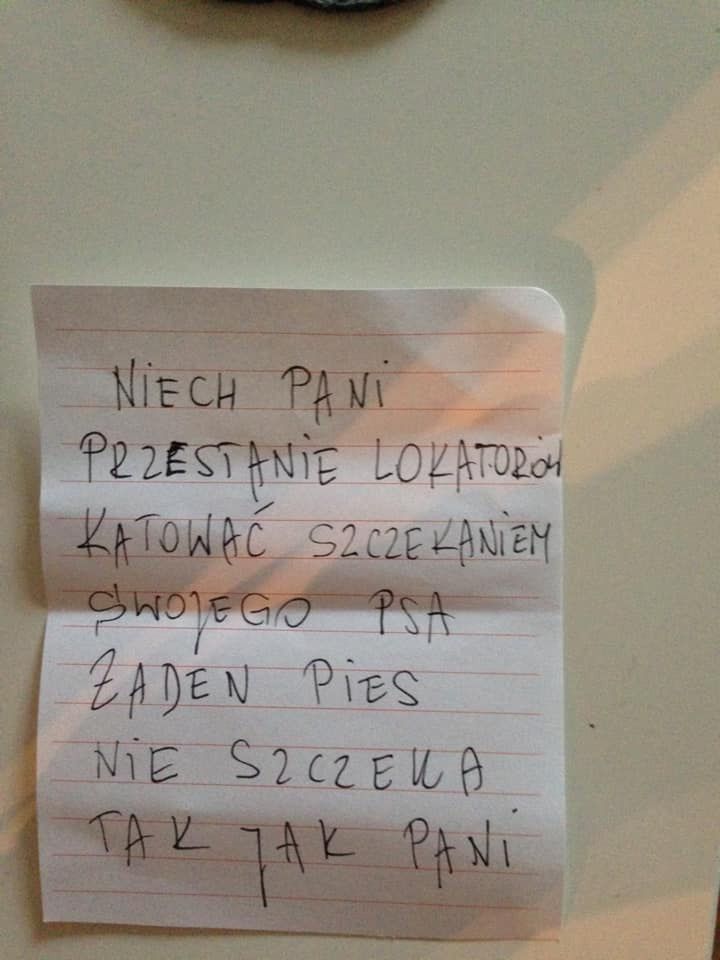 NIECH PANI
PRZESTANIE LOKATORÓW
KATOWAĆ SZCZEKANIEM
SWOJEGO PSA
ŻADEN PIES
NIE SZCZEKA
TAK JAK PANI